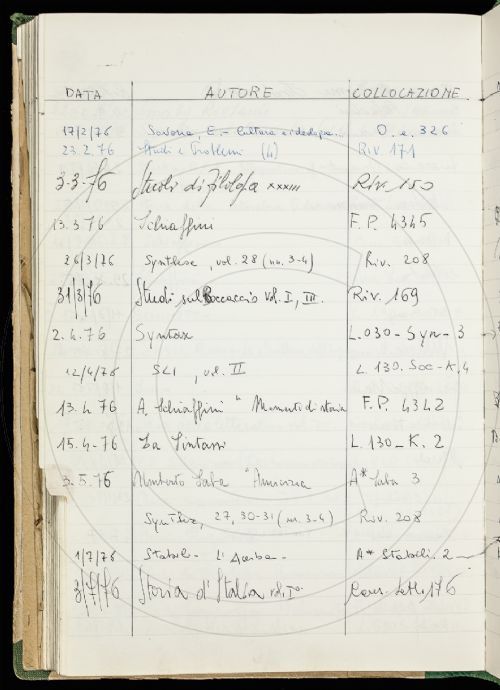 DATA AUTORE COLLOCAZIONE
17/2/76 Savona, E. - Cultura e ideologia... O. e. 326
23.2.76 Studi e Problemi (4) Riv 171
3-3-76 Studi di Filologia XXXIII Riv. 150
13.3 76 Schiaffini F.P. 4345
26/3/76 Synthese, vol. 28 (nn. 3-4) Riv. 208
31/3/76 Studi sul Boccaccio vol. I, III. Riv. 169
2.4.76 Syntax L.030-Syn-3
12/4/76 SLI, vol. II L 130. Soc-K.4
13.4 76 A. Schiaffini "Momenti di storia F.P. 4342
15.4-76 La Sintassi L.130-K.2
3.5.76 Umberto Saba "Amicizia A* Saba 3
Synthese, 27, 30-31 (nn. 3-4) Riv. 208
1/7/76 Stabili - L'Acerba - A* Stabili. 2
3/7/76 Storia d'Italia vol. I° Cons. Lett. 176